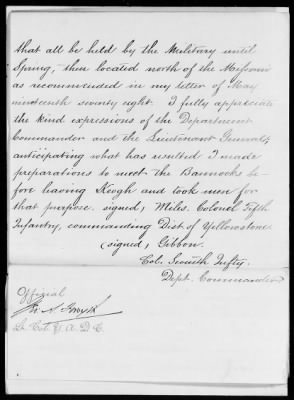 that all be held by the Military until
Spring, then located north of the Missouri
as recommended in my letter of May
nineteenth seventy eight. I fully appreciate
the kind expressions of the Department
Commander and the Lieutenant General,
anticipating what has resulted I made
preparations to meet the Bannocks be-
fore leaving Keogh and took men for
that purpose. signed, Miles, Colonel Fifth
Infantry, commanding Dist of Yellowstone
(signed, Gibbon.
Col. Seventh Infty.
Dept. Commander
Official
Lt Col. & A. D. C.